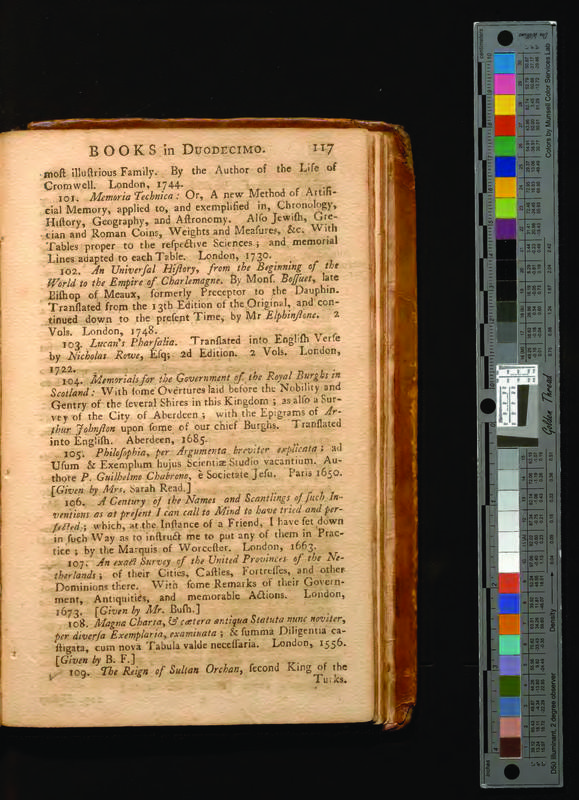 BOOKS in DUODECIMO. 117
moſt illuſtrious Family. By the Author of the Life of
Cromwell. London, 1744.
101. Memoria Technica: Or, A new Method of Artifi-
cial Memory, applied to, and exemplified in, Chronology,
Hiſtory, Geography, and Aſtronomy. Alſo Jewiſh, Gre-
cian and Roman Coins, Weights and Meaſures, &c. With
Tables proper to the reſpective Sciences; and memorial
Lines adapted to each Table. London, 1730.
102. An Univerſal Hiſtory, from the Beginning of the
World to the Empire of Charlemagne. By Monſ. Boſſuet, late
Biſhop of Meaux, formerly Preceptor to the Dauphin.
Tranſlated from the 13th Edition of the Original, and con-
tinued down to the preſent Time, by Mr Elphinſtone. 2
Vols. London, 1748.
103. Lucan's Pharſalia. Tranſlated into Engliſh Verſe
by Nicholas Rowe, Eſq; 2d Edition. 2 Vols. London,
1722.
104. Memorials for the Government of the Royal Burghs in
Scotland: With ſome Overtures laid before the Nobility and
Gentry of the ſeveral Shires in this Kingdom; as alſo a Sur-
vey of the City of Aberdeen; with the Epigrams of Ar-
thur Johnſton upon ſome of our chief Burghs. Tranſlated
into Engliſh. Aberdeen, 1685.
105. Philoſophia, per Argumenta breviter explicata; ad
Uſum & Exemplum hujus Scientiæ Studio vacantium. Au-
thore P. Guilhelmo Chabrono, è Societate Jeſu. Paris 1650.
[Given by Mrs. Sarah Read.]
106. A Century of the Names and Scantlings of ſuch In-
ventions as at preſent I can call to Mind to have tried and per-
fected; which, at the Inſtance of a Friend, I have ſet down
in ſuch Way as to inſtruct me to put any of them in Prac-
tice; by the Marquis of Worceſter. London, 1663.
107. An exact Survey of the United Provinces of the Ne-
therlands; of their Cities, Caſtles, Fortreſſes, and other
Dominions there. With ſome Remarks of their Govern-
ment, Antiquities, and memorable Actions. London,
1673. [Given by Mr. Buſh.]
108. Magna Charta, & cætera antiqua Statuta nunc noviter,
per diverſa Exemplaria, examinata; & ſumma Diligentia ca-
ſtigata, cum nova Tabula valde neceſſaria. London, 1556.
[Given by B. F.]
109. The Reign of Sultan Orchan, ſecond King of the
Turks.
Colors by Munsell Color Services Lab
Golden Thread
Density
D50 Illuminant, 2 degree observer
inches
centimeters